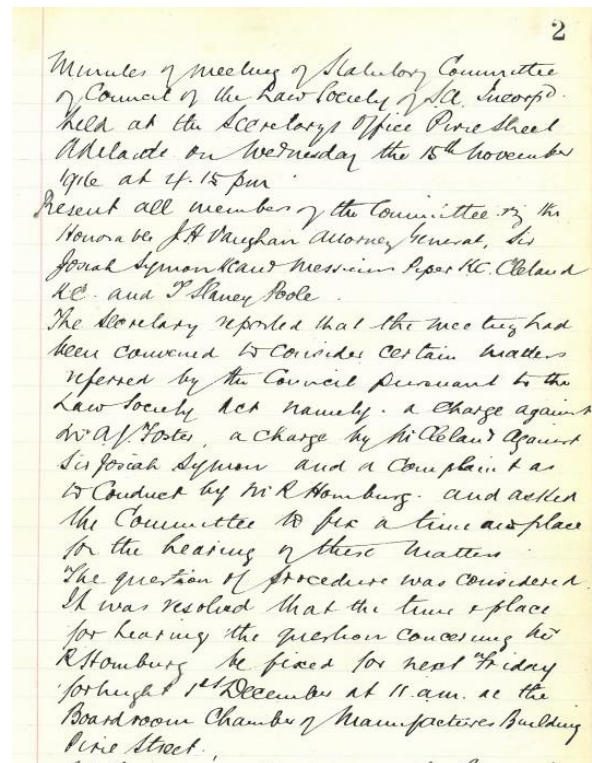 2
Minutes of meeting of Statutory Committee
of Council of the Law Society of S.A. Incorpd.
held at the Secretarys Office Pirie Street
Adelaide on Wednesday the 15th November
1916 at 4.15 pm
Present all members of the Committee viz the
Honorable J H Vaughan Attorney General, Sir
Josiah Symon K and Messieurs Piper KC. Cleland
KC. and T Slaney Poole
The Secretary reported that the meeting had
been convened to consider certain matters
referred by the Council pursuant to the
Law Society Act namely. a charge against
Mr A.J. Foster, a charge by Mr Cleland against
Sir Josiah Symon and a complaint as
to Conduct by Mr R Homburg. and asked
the Committee to fix a time and place
for the hearing of these matters
The question of procedure was considered.
It was resolved that the time & place
for hearing the question concerning Mr
R Homburg be fixed for next Friday
fortnight 1st December at 11 a.m. at the
Boardroom Chamber of Manufactures Building
Pirie Street.